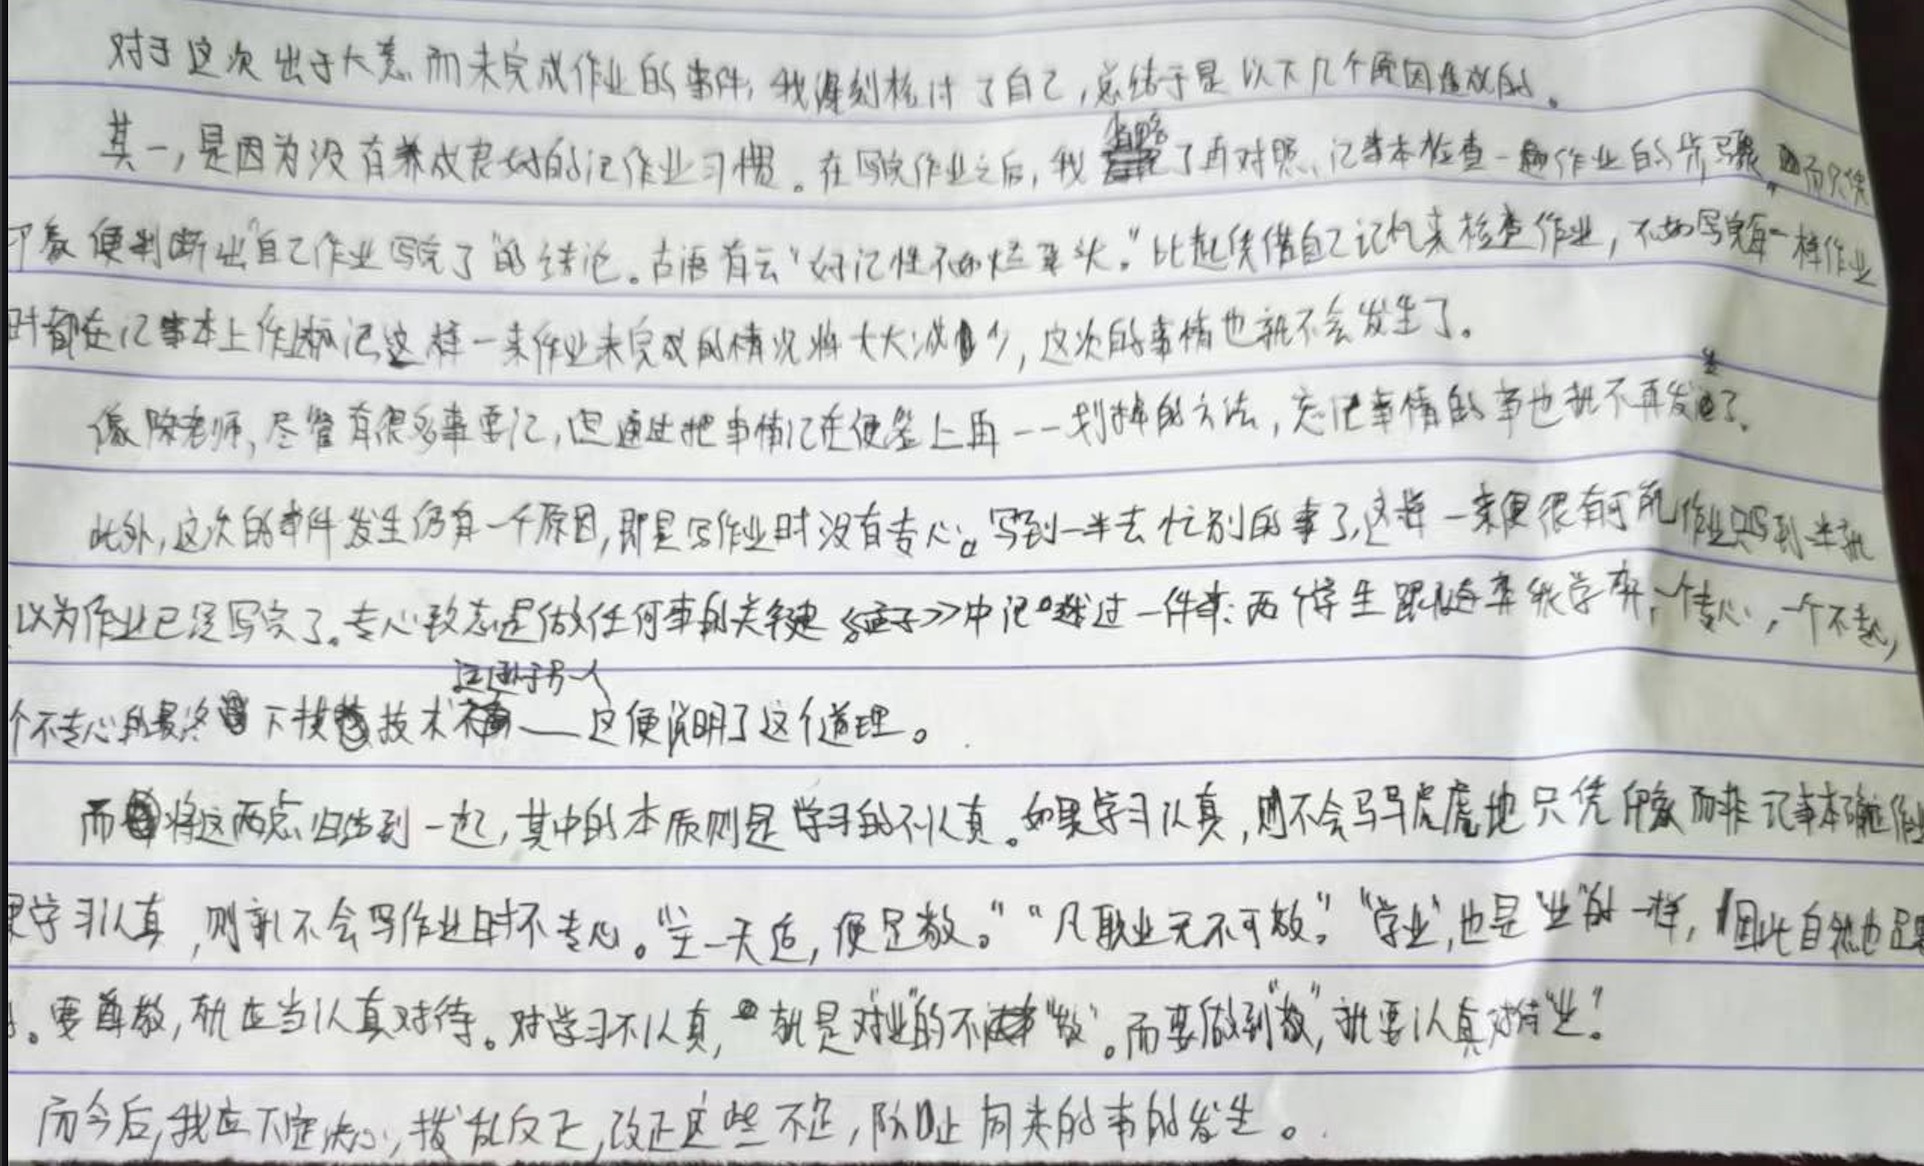 对于这次出于大意而未完成作业的事件,我深刻检讨了自己,总结于是以下几个原因造成的。
其一,是因为没有养成良好的记作业习惯。在写完作业之后,我省略了再对照记事本检查一遍作业的步骤,而只凭
印象便判断出"自己作业写完了"的结论。古语有云"好记性不如烂笔头。"比起凭借自己记忆来检查作业,不如写完每一样作业
时都在记事本上作上标记这样一来作业未完成的情况将大大减少,这次的事情也就不会发生了。
像陈老师,尽管有很多事要记,但通过把事情记在便签上再一一划掉的方法,忘记事情的事也就不再发生了。
此外,这次的事件发生仍有一个原因,即是写作业时没有专心。写到一半去忙别的事了,这样一来便很有可能作业只写到一半就
以为作业已经写完了。专心致志是做任何事的关键《孟子》中记述过一件事:两个学生跟随弈秋学弈,一个专心,一个不专心,
个不专心的最终下技技术远逊于另一人——这便说明了这个道理。
而将这两点归结到一起,其中的本质则是学习的不认真。如果学习认真,则不会马马虎虎地只凭印象而非记事本确认作业
果学习认真,则就不会写作业时不专心。"主一无适,便是敬。""凡职业无不可敬。""学业",也是"业"的一样,因此自然也是要
。要尊敬,就应当认真对待。对学习不认真,就是对"业"的不"敬"。而要做到"敬",就要认真对待"业"!
而今后,我应下定决心,拨乱反正,改正这些不足,防止向来的事的发生。